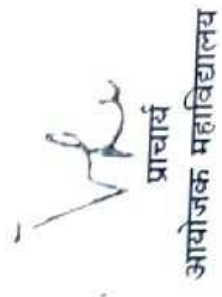 प्राचार्य
आयोजक महाविद्यालय